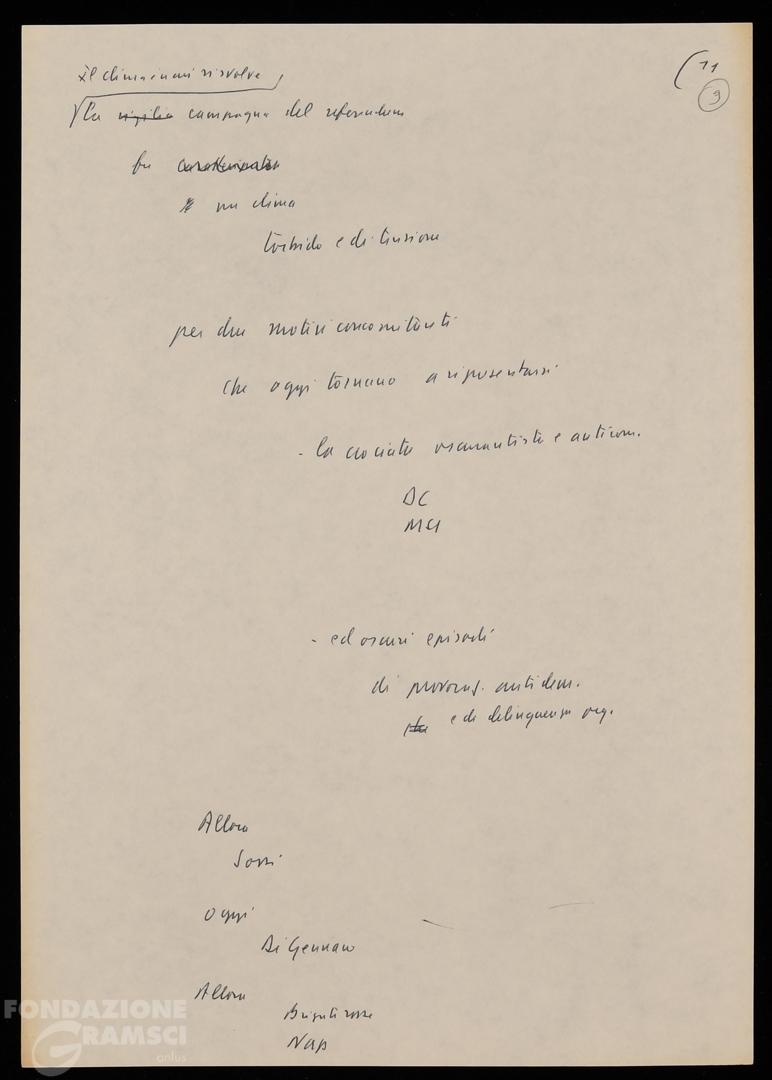 Il clima in cui si svolse
(11
3
La vigilia campagna del referendum
fu caratterizzata
un clima
torbido e di tensione
per due motivi concomitanti
che oggi tornano a ripresentarsi
- la crociata oscurantista e anticom.
DC
MSI
- ed oscuri episodi
di provocaz. antidem.
e di delinquenza org.
Allora
Sossi
oggi
Di Gennaro
Allora
Brigate rosse
Nap
FONDAZIONE
GRAMSCI
onlus